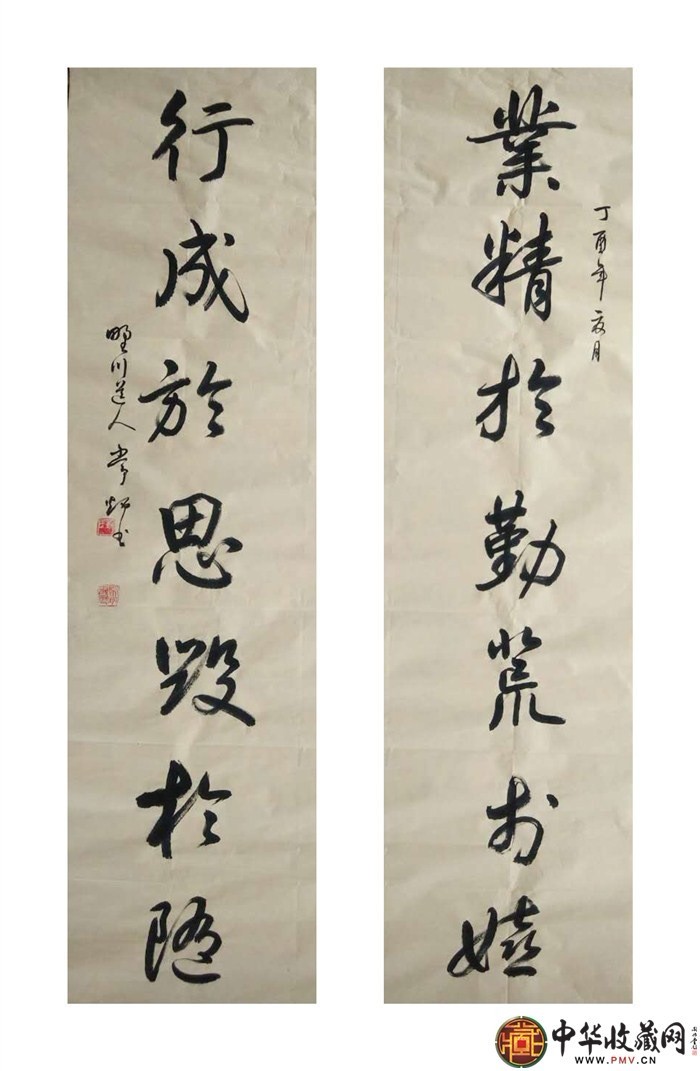 丁酉年夏月
業精於勤荒于嬉
行成於思毀於隨
野川道人常炽书
中华收藏网
WWW.PMV.CN